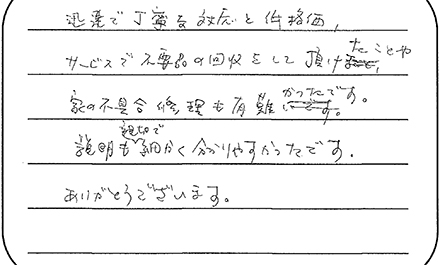 迅速で丁寧な対応と低格価、
サービスで不要品の回収をして頂けたことや
家の不具合修理も有難かったです。
説明も親切で細かく分かりやすかったです。
ありがとうございます。